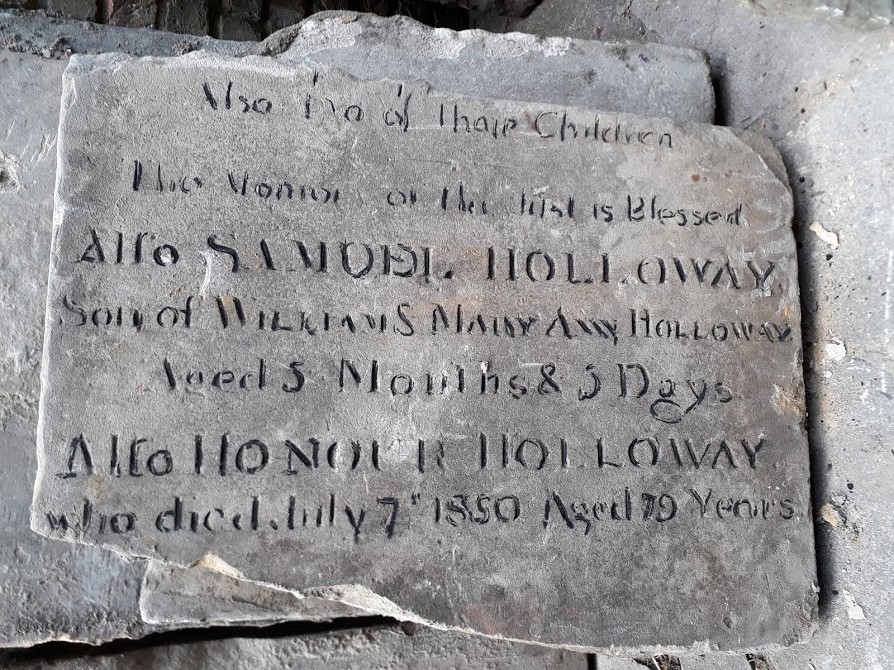 Also Two of Thare Children
The Memory of the Just is Blessed
Alſo SAMUEL HOLLOWAY
Son of WILLIAM & MARY ANN HOLLOWAY
Aged 5 Months & 5 Days
Alſo HONOUR HOLLOWAY
who died July 7th 1850 Aged 79 Years